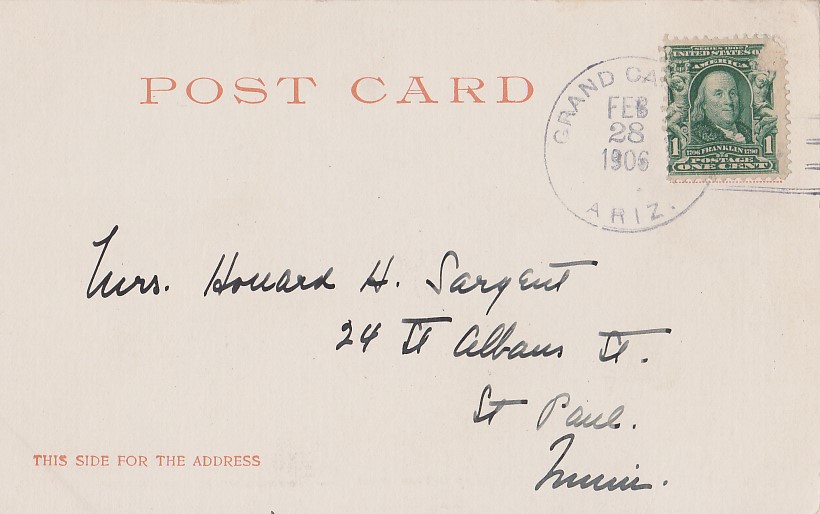 POST CARD
GRAND CA
FEB
28
1906
ARIZ.
SERIES 1902
UNITED STATES O
AMERICA
1 1
1706 FRANKLIN 1790
POSTAGE
ONE CENT
Mrs. Howard H. Sargent
24 St Albans St.
St Paul.
Minn.
THIS SIDE FOR THE ADDRESS